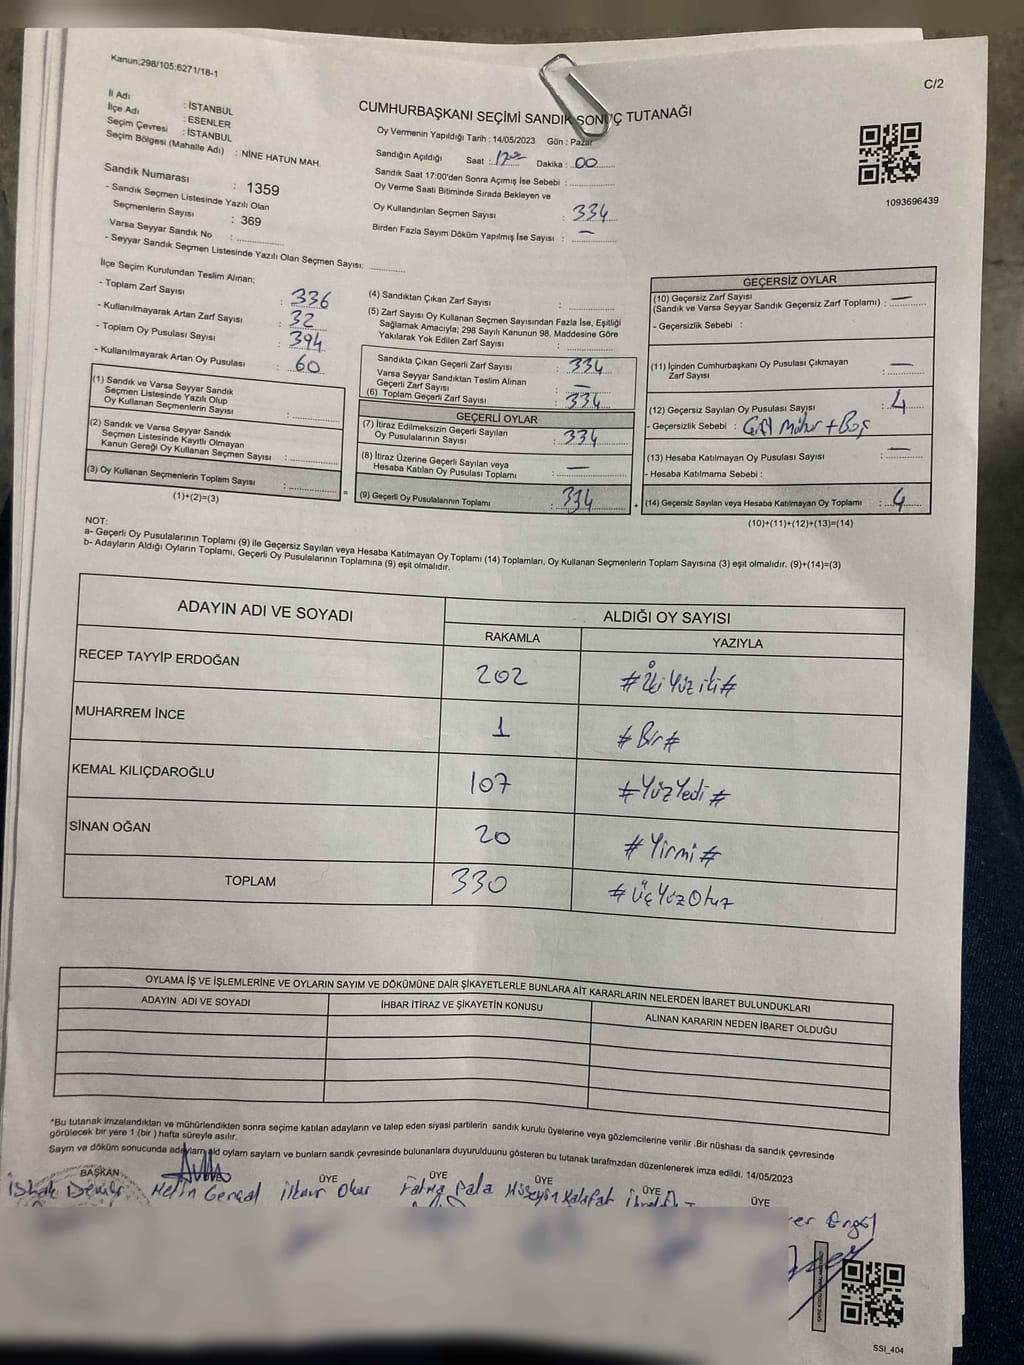 Kanun;298/105;6271/18-1
C/2
İl Adı : İSTANBUL
İlçe Adı : ESENLER
Seçim Çevresi : İSTANBUL
Seçim Bölgesi (Mahalle Adı) : NİNE HATUN MAH.
Sandık Numarası : 1359
- Sandık Seçmen Listesinde Yazılı Olan
Seçmenlerin Sayısı : 369
Varsa Seyyar Sandık No : ..............
- Seyyar Sandık Seçmen Listesinde Yazılı Olan Seçmen Sayısı: ............
CUMHURBAŞKANI SEÇİMİ SANDIK SONUÇ TUTANAĞI
Oy Vermenin Yapıldığı Tarih : 14/05/2023 Gün : Pazar
Sandığın Açıldığı Saat : 17:00 Dakika : 00
Sandık Saat 17:00'den Sonra Açımış İse Sebebi : ..............
Oy Verme Saati Bitiminde Sırada Bekleyen ve
Oy Kullandırılan Seçmen Sayısı : 334
Birden Fazla Sayım Döküm Yapılmış İse Sayısı : —
1093696439
İlçe Seçim Kurulundan Teslim Alınan;
- Toplam Zarf Sayısı : 336
- Kullanılmayarak Artan Zarf Sayısı : 32
- Toplam Oy Pusulası Sayısı : 394
- Kullanılmayarak Artan Oy Pusulası : 60
(1) Sandık ve Varsa Seyyar Sandık
Seçmen Listesinde Yazılı Olup
Oy Kullanan Seçmenlerin Sayısı : ..............
(2) Sandık ve Varsa Seyyar Sandık
Seçmen Listesinde Kayıtlı Olmayan
Kanun Gereği Oy Kullanan Seçmen Sayısı : ..............
(3) Oy Kullanan Seçmenlerin Toplam Sayısı : ..............
(1)+(2)=(3)
(4) Sandıktan Çıkan Zarf Sayısı : ..............
(5) Zarf Sayısı Oy Kullanan Seçmen Sayısından Fazla İse, Eşitliği
Sağlamak Amacıyla; 298 Sayılı Kanunun 98. Maddesine Göre
Yakılarak Yok Edilen Zarf Sayısı : ..............
Sandıkta Çıkan Geçerli Zarf Sayısı : 334
Varsa Seyyar Sandıktan Teslim Alınan
Geçerli Zarf Sayısı : —
(6) Toplam Geçerli Zarf Sayısı : 334
GEÇERLİ OYLAR
(7) İtiraz Edilmeksizin Geçerli Sayılan
Oy Pusulalarının Sayısı : 334
(8) İtiraz Üzerine Geçerli Sayılan veya
Hesaba Katılan Oy Pusulası Toplamı : —
= (9) Geçerli Oy Pusulalarının Toplamı : 334
GEÇERSİZ OYLAR
(10) Geçersiz Zarf Sayısı
(Sandık ve Varsa Seyyar Sandık Geçersiz Zarf Toplamı) : —
- Geçersizlik Sebebi :
(11) İçinden Cumhurbaşkanı Oy Pusulası Çıkmayan
Zarf Sayısı : —
(12) Geçersiz Sayılan Oy Pusulası Sayısı : 4
- Geçersizlik Sebebi : Çift Mühür + Boş
(13) Hesaba Katılmayan Oy Pusulası Sayısı : —
- Hesaba Katılmama Sebebi :
+ (14) Geçersiz Sayılan veya Hesaba Katılmayan Oy Toplamı : 4
(10)+(11)+(12)+(13)=(14)
NOT:
a- Geçerli Oy Pusulalarının Toplamı (9) ile Geçersiz Sayılan veya Hesaba Katılmayan Oy Toplamı (14) Toplamları, Oy Kullanan Seçmenlerin Toplam Sayısına (3) eşit olmalıdır. (9)+(14)=(3)
b- Adayların Aldığı Oyların Toplamı, Geçerli Oy Pusulalarının Toplamına (9) eşit olmalıdır.
ADAYIN ADI VE SOYADI ALDIĞI OY SAYISI
RAKAMLA YAZIYLA
RECEP TAYYİP ERDOĞAN 202 # İki Yüz iki #
MUHARREM İNCE 1 # Bir #
KEMAL KILIÇDAROĞLU 107 # Yüz Yedi #
SİNAN OĞAN 20 # Yirmi #
TOPLAM 330 # Üç Yüz Otuz
OYLAMA İŞ VE İŞLEMLERİNE VE OYLARIN SAYIM VE DÖKÜMÜNE DAİR ŞİKAYETLERLE BUNLARA AİT KARARLARIN NELERDEN İBARET BULUNDUKLARI
ADAYIN ADI VE SOYADI İHBAR İTİRAZ VE ŞİKAYETİN KONUSU ALINAN KARARIN NEDEN İBARET OLDUĞU
*Bu tutanak imzalandıktan ve mühürlendikten sonra seçime katılan adayların ve talep eden siyasi partilerin sandık kurulu üyelerine veya gözlemcilerine verilir .Bir nüshası da sandık çevresinde
görülecek bir yere 1 (bir ) hafta süreyle asılır.
Sayım ve döküm sonucunda adayların ald oylam sayların ve bunların sandık çevresinde bulunanlara duyurulduunu gösteren bu tutanak tarafımızdan düzenlenerek imza edildi. 14/05/2023
BAŞKAN ÜYE ÜYE ÜYE ÜYE ÜYE
İshak Demir Metin Gençal İlknur Okur Fatma Pala Hüseyin Kalafat
SSI_404